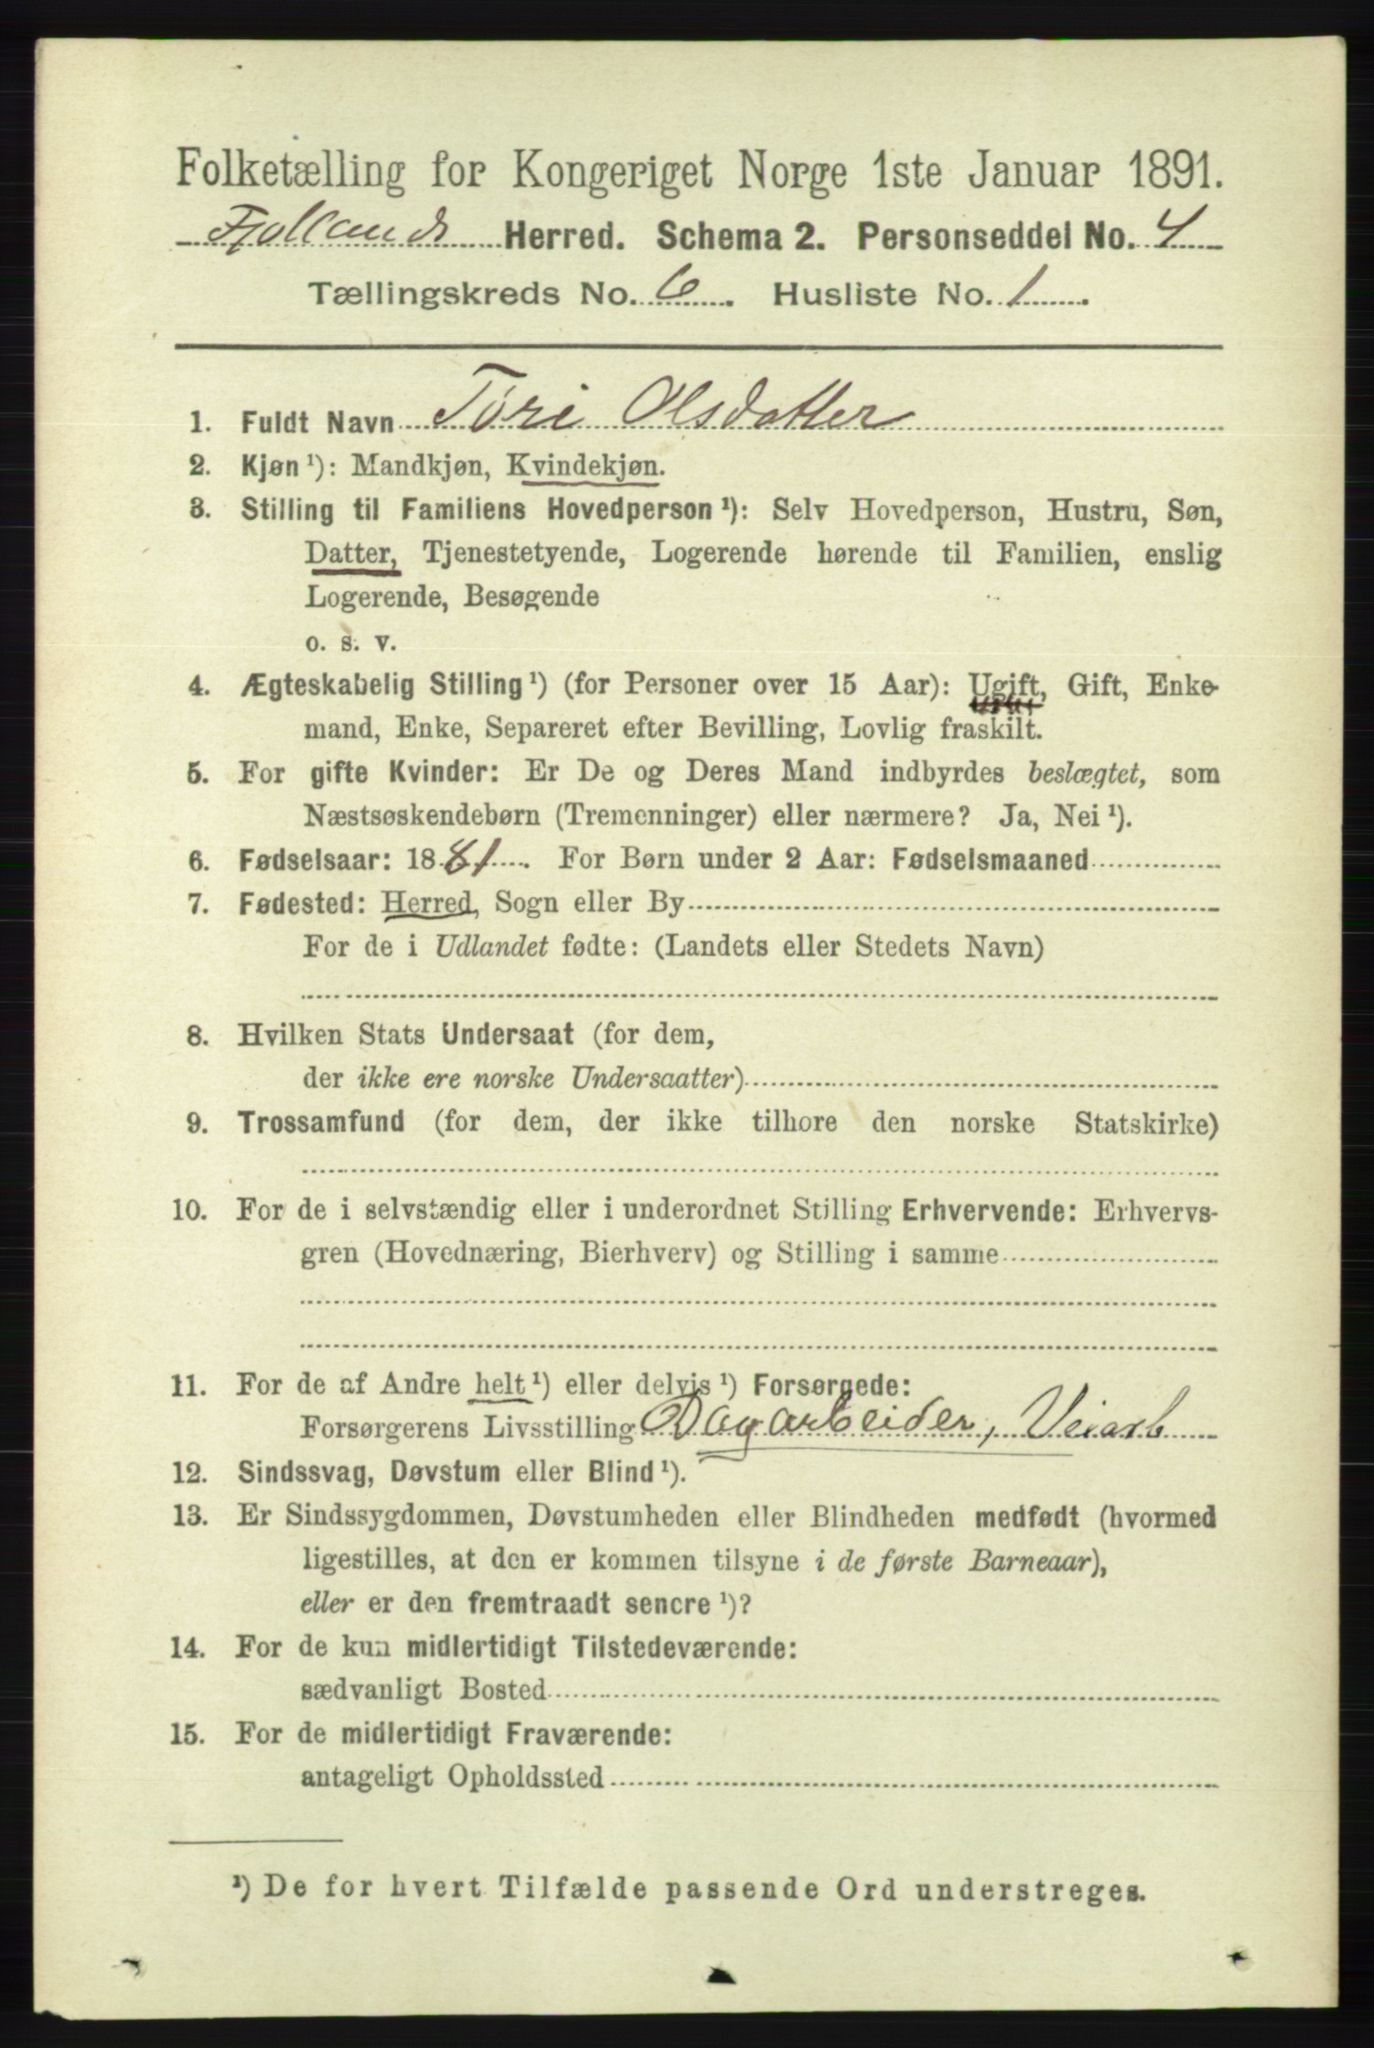 Folketælling for Kongeriget Norge 1ste Januar 1891.
Fjotlands Herred. Schema 2. Personseddel No. 4
Tællingskreds No. 6. Husliste No. 1.
1. Fuldt Navn Tøri Olsdatter
2. Kjøn ¹): Mandkjøn, Kvindekjøn.
3. Stilling til Familiens Hovedperson ¹): Selv Hovedperson, Hustru, Søn,
Datter, Tjenestetyende, Logerende hørende til Familien, enslig
Logerende, Besøgende
o. s. v.
4. Ægteskabelig Stilling ¹) (for Personer over 15 Aar): Ugift, Gift, Enke-
mand, Enke, Separeret efter Bevilling, Lovlig fraskilt.
5. For gifte Kvinder: Er De og Deres Mand indbyrdes beslægtet, som
Næstsøskendebørn (Tremenninger) eller nærmere? Ja, Nei ¹).
6. Fødselsaar: 1881. For Børn under 2 Aar: Fødselsmaaned
7. Fødested: Herred, Sogn eller By
For de i Udlandet fødte: (Landets eller Stedets Navn)
8. Hvilken Stats Undersaat (for dem,
der ikke ere norske Undersaatter)
9. Trossamfund (for dem, der ikke tilhøre den norske Statskirke)
10. For de i selvstændig eller i underordnet Stilling Erhvervende: Erhvervs-
gren (Hovednæring, Bierhverv) og Stilling i samme
11. For de af Andre helt ¹) eller delvis ¹) Forsørgede:
Forsørgerens Livsstilling Dagarbeider, Veiarb
12. Sindssvag, Døvstum eller Blind ¹).
13. Er Sindssygdommen, Døvstumheden eller Blindheden medfødt (hvormed
ligestilles, at den er kommen tilsyne i de første Barneaar),
eller er den fremtraadt senere ¹)?
14. For de kun midlertidigt Tilstedeværende:
sædvanligt Bosted
15. For de midlertidigt Fraværende:
antageligt Opholdssted
¹) De for hvert Tilfælde passende Ord understreges.